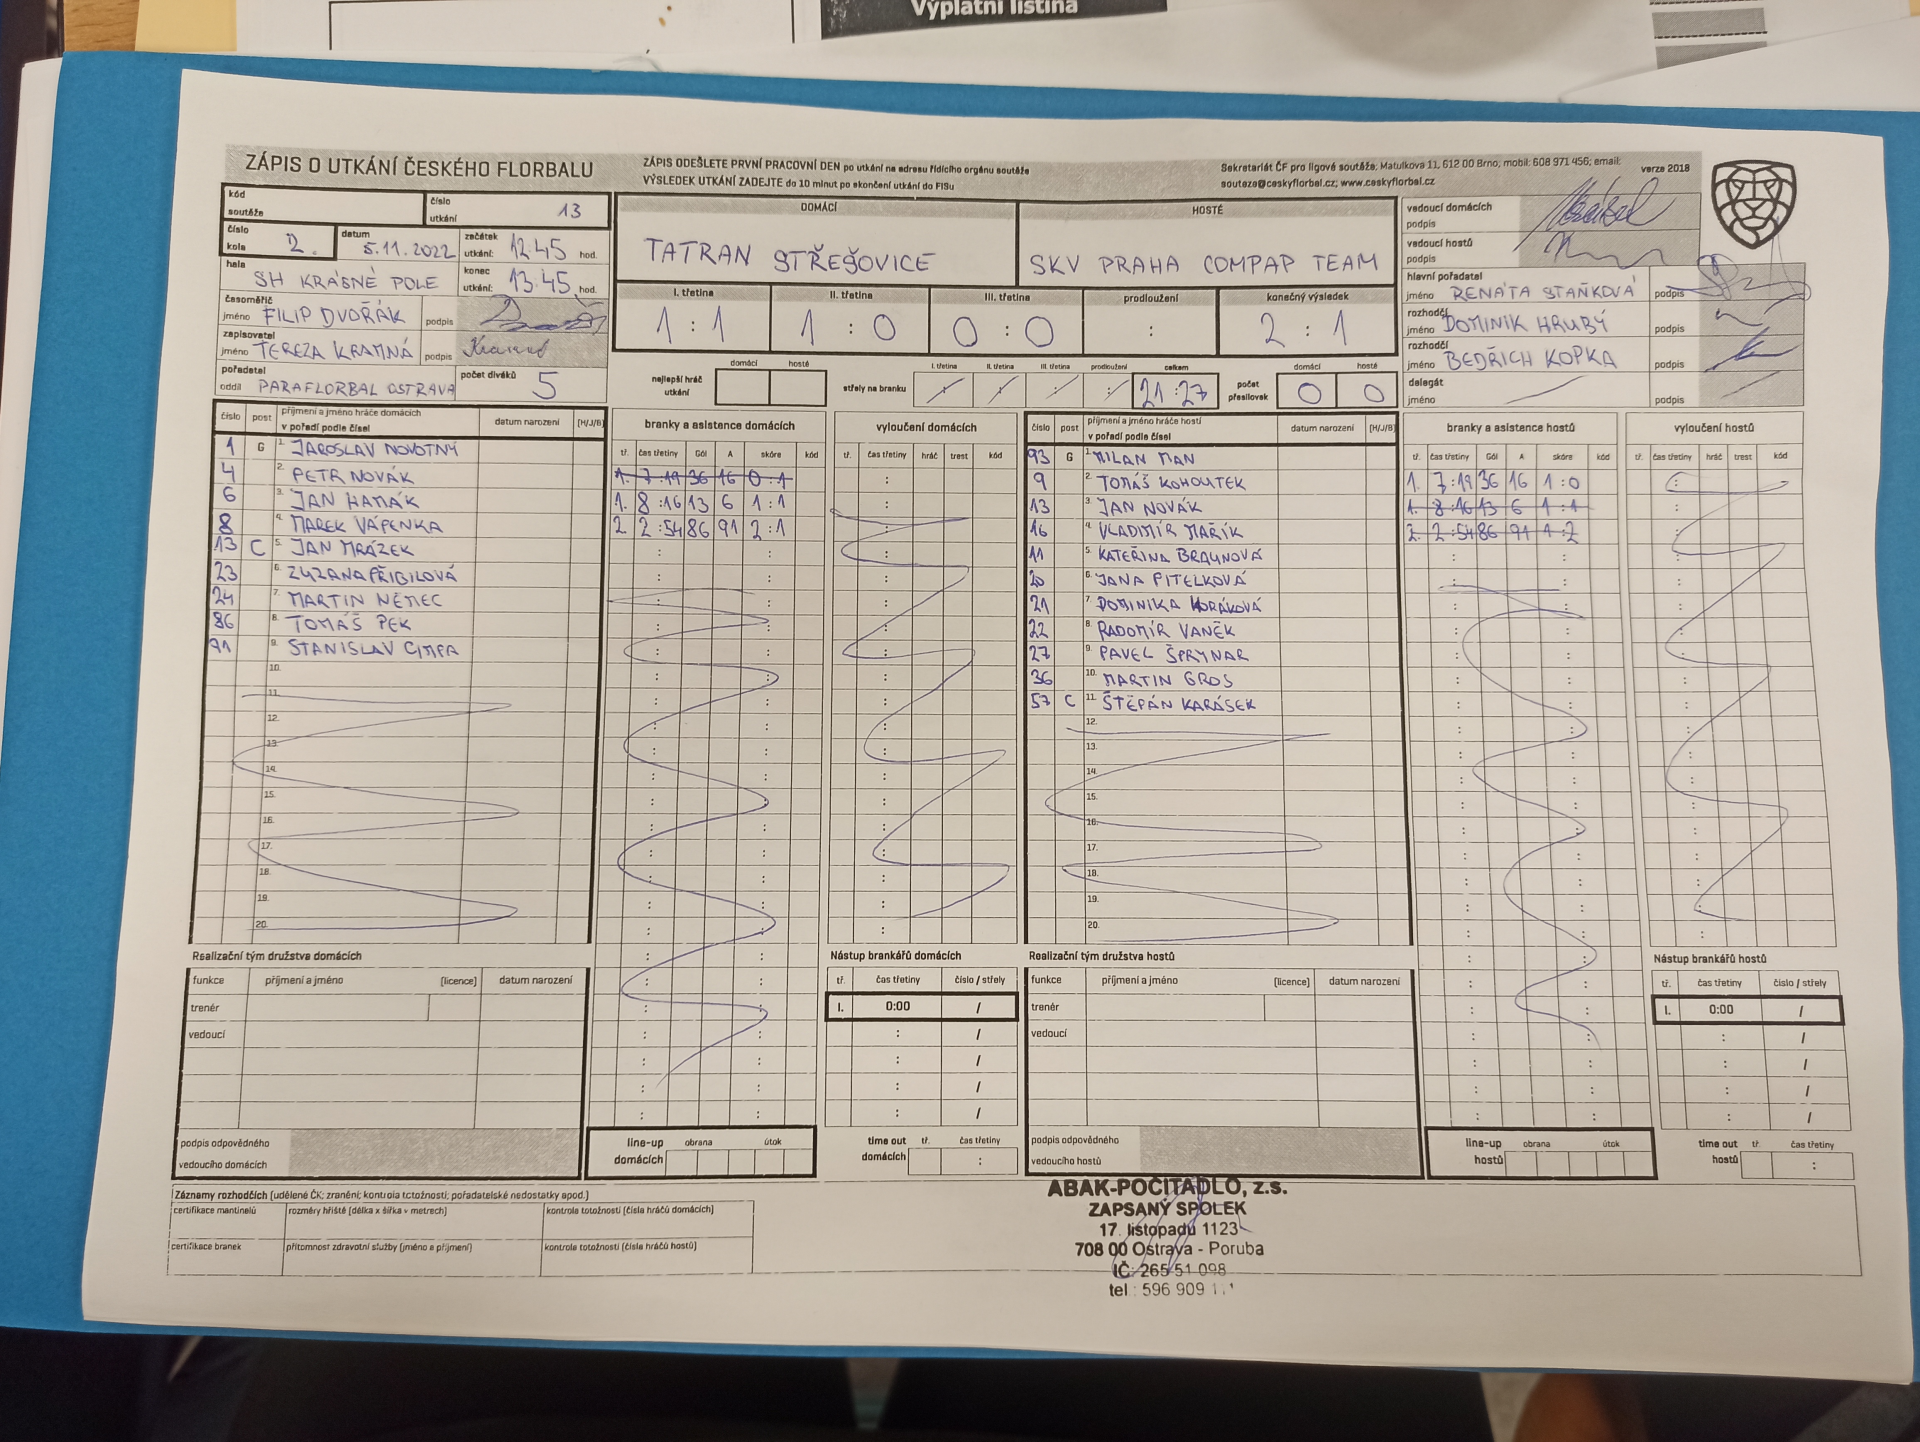 Výplatní listina
ZÁPIS O UTKÁNÍ ČESKÉHO FLORBALU
ZÁPIS ODEŠLETE PRVNÍ PRACOVNÍ DEN po utkání na adresu řídícího orgánu soutěže
VÝSLEDEK UTKÁNÍ ZADEJTE do 10 minut po skončení utkání do FISu
Sekretariát ČF pro ligové soutěže; Matulkova 11, 612 00 Brno; mobil: 608 971 456; email:
souteze@ceskyflorbal.cz; www.ceskyflorbal.cz
verze 2018
kód soutěže
číslo utkání 13
číslo kola 2.
datum 5.11.2022
začátek utkání: 12:45 hod.
hala SH KRÁSNÉ POLE
konec utkání: 13:45 hod.
časoměřič jméno FILIP DVOŘÁK podpis
zapisovatel jméno TEREZA KRAMNÁ podpis
pořadatel oddíl PARAFLORBAL OSTRAVA
počet diváků 5
DOMÁCÍ
TATRAN STŘEŠOVICE
HOSTÉ
SKV PRAHA COMPAP TEAM
I. třetina II. třetina III. třetina prodloužení konečný výsledek
1 : 1 1 : 0 0 : 0 : 2 : 1
nejlepší hráč utkání domácí hosté
střely na branku I. třetina II. třetina III. třetina prodloužení celkem
21:27
počet přesilovek domácí hosté
0 0
vedoucí domácích podpis
vedoucí hostů podpis
hlavní pořadatel jméno RENÁTA STAŇKOVÁ podpis
rozhodčí jméno DOMINIK HRUBÝ podpis
rozhodčí jméno BEDŘICH KOPKA podpis
delegát jméno podpis
číslo post příjmení a jméno hráče domácích v pořadí podle čísel datum narození [M/J/B]
1 G 1. JAROSLAV NOVOTNÝ
4 2. PETR NOVÁK
6 3. JAN HAMÁK
8 4. MAREK VÁPENKA
13 C 5. JAN MRÁZEK
23 6. ZUZANA PŘIBILOVÁ
24 7. MARTIN NĚMEC
86 8. TOMÁŠ PEK
91 9. STANISLAV CIMPA
10.
11.
12.
13.
14.
15.
16.
17.
18.
19.
20.
branky a asistence domácích
tř. čas třetiny Gól A skóre kód
1. 7:19 36 16 0:1
1. 8:16 13 6 1:1
2. 2:54 86 91 2:1
vyloučení domácích
tř. čas třetiny hráč trest kód
číslo post příjmení a jméno hráče hostí v pořadí podle čísel datum narození [M/J/B]
93 G 1. MILAN MAN
9 2. TOMÁŠ KOHOUTEK
13 3. JAN NOVÁK
16 4. VLADIMÍR MAŘÍK
11 5. KATEŘINA BRAUNOVÁ
20 6. JANA PITELKOVÁ
21 7. DOMINIKA HORÁKOVÁ
22 8. RADOMÍR VANĚK
27 9. PAVEL ŠPRYNAR
36 10. MARTIN GROS
57 C 11. ŠTĚPÁN KARÁSEK
12.
13.
14.
15.
16.
17.
18.
19.
20.
branky a asistence hostů
tř. čas třetiny Gól A skóre kód
1. 7:19 36 16 1:0
1. 8:16 13 6 1:1
2. 2:54 86 91 1:2
vyloučení hostů
tř. čas třetiny hráč trest kód
Realizační tým družstva domácích
funkce příjmení a jméno [licence] datum narození
trenér
vedoucí
podpis odpovědného vedoucího domácích
line-up domácích obrana útok
Nástup brankářů domácích
tř. čas třetiny číslo / střely
I. 0:00 /
time out domácích tř. čas třetiny
Realizační tým družstva hostů
funkce příjmení a jméno [licence] datum narození
trenér
vedoucí
podpis odpovědného vedoucího hostů
line-up hostů obrana útok
Nástup brankářů hostů
tř. čas třetiny číslo / střely
I. 0:00 /
time out hostů tř. čas třetiny
Záznamy rozhodčích (udělené ČK; zranění; kontrola totožnosti; pořadatelské nedostatky apod.)
certifikace mantinelů rozměry hřiště (délka x šířka v metrech) kontrola totožnosti (čísla hráčů domácích)
certifikace branek přítomnost zdravotní služby (jméno a příjmení) kontrola totožnosti (čísla hráčů hostů)
ABAK-POČITADLO, z.s.
ZAPSANÝ SPOLEK
17. listopadu 1123
708 00 Ostrava - Poruba
IČ: 265 51 098
tel.: 596 909